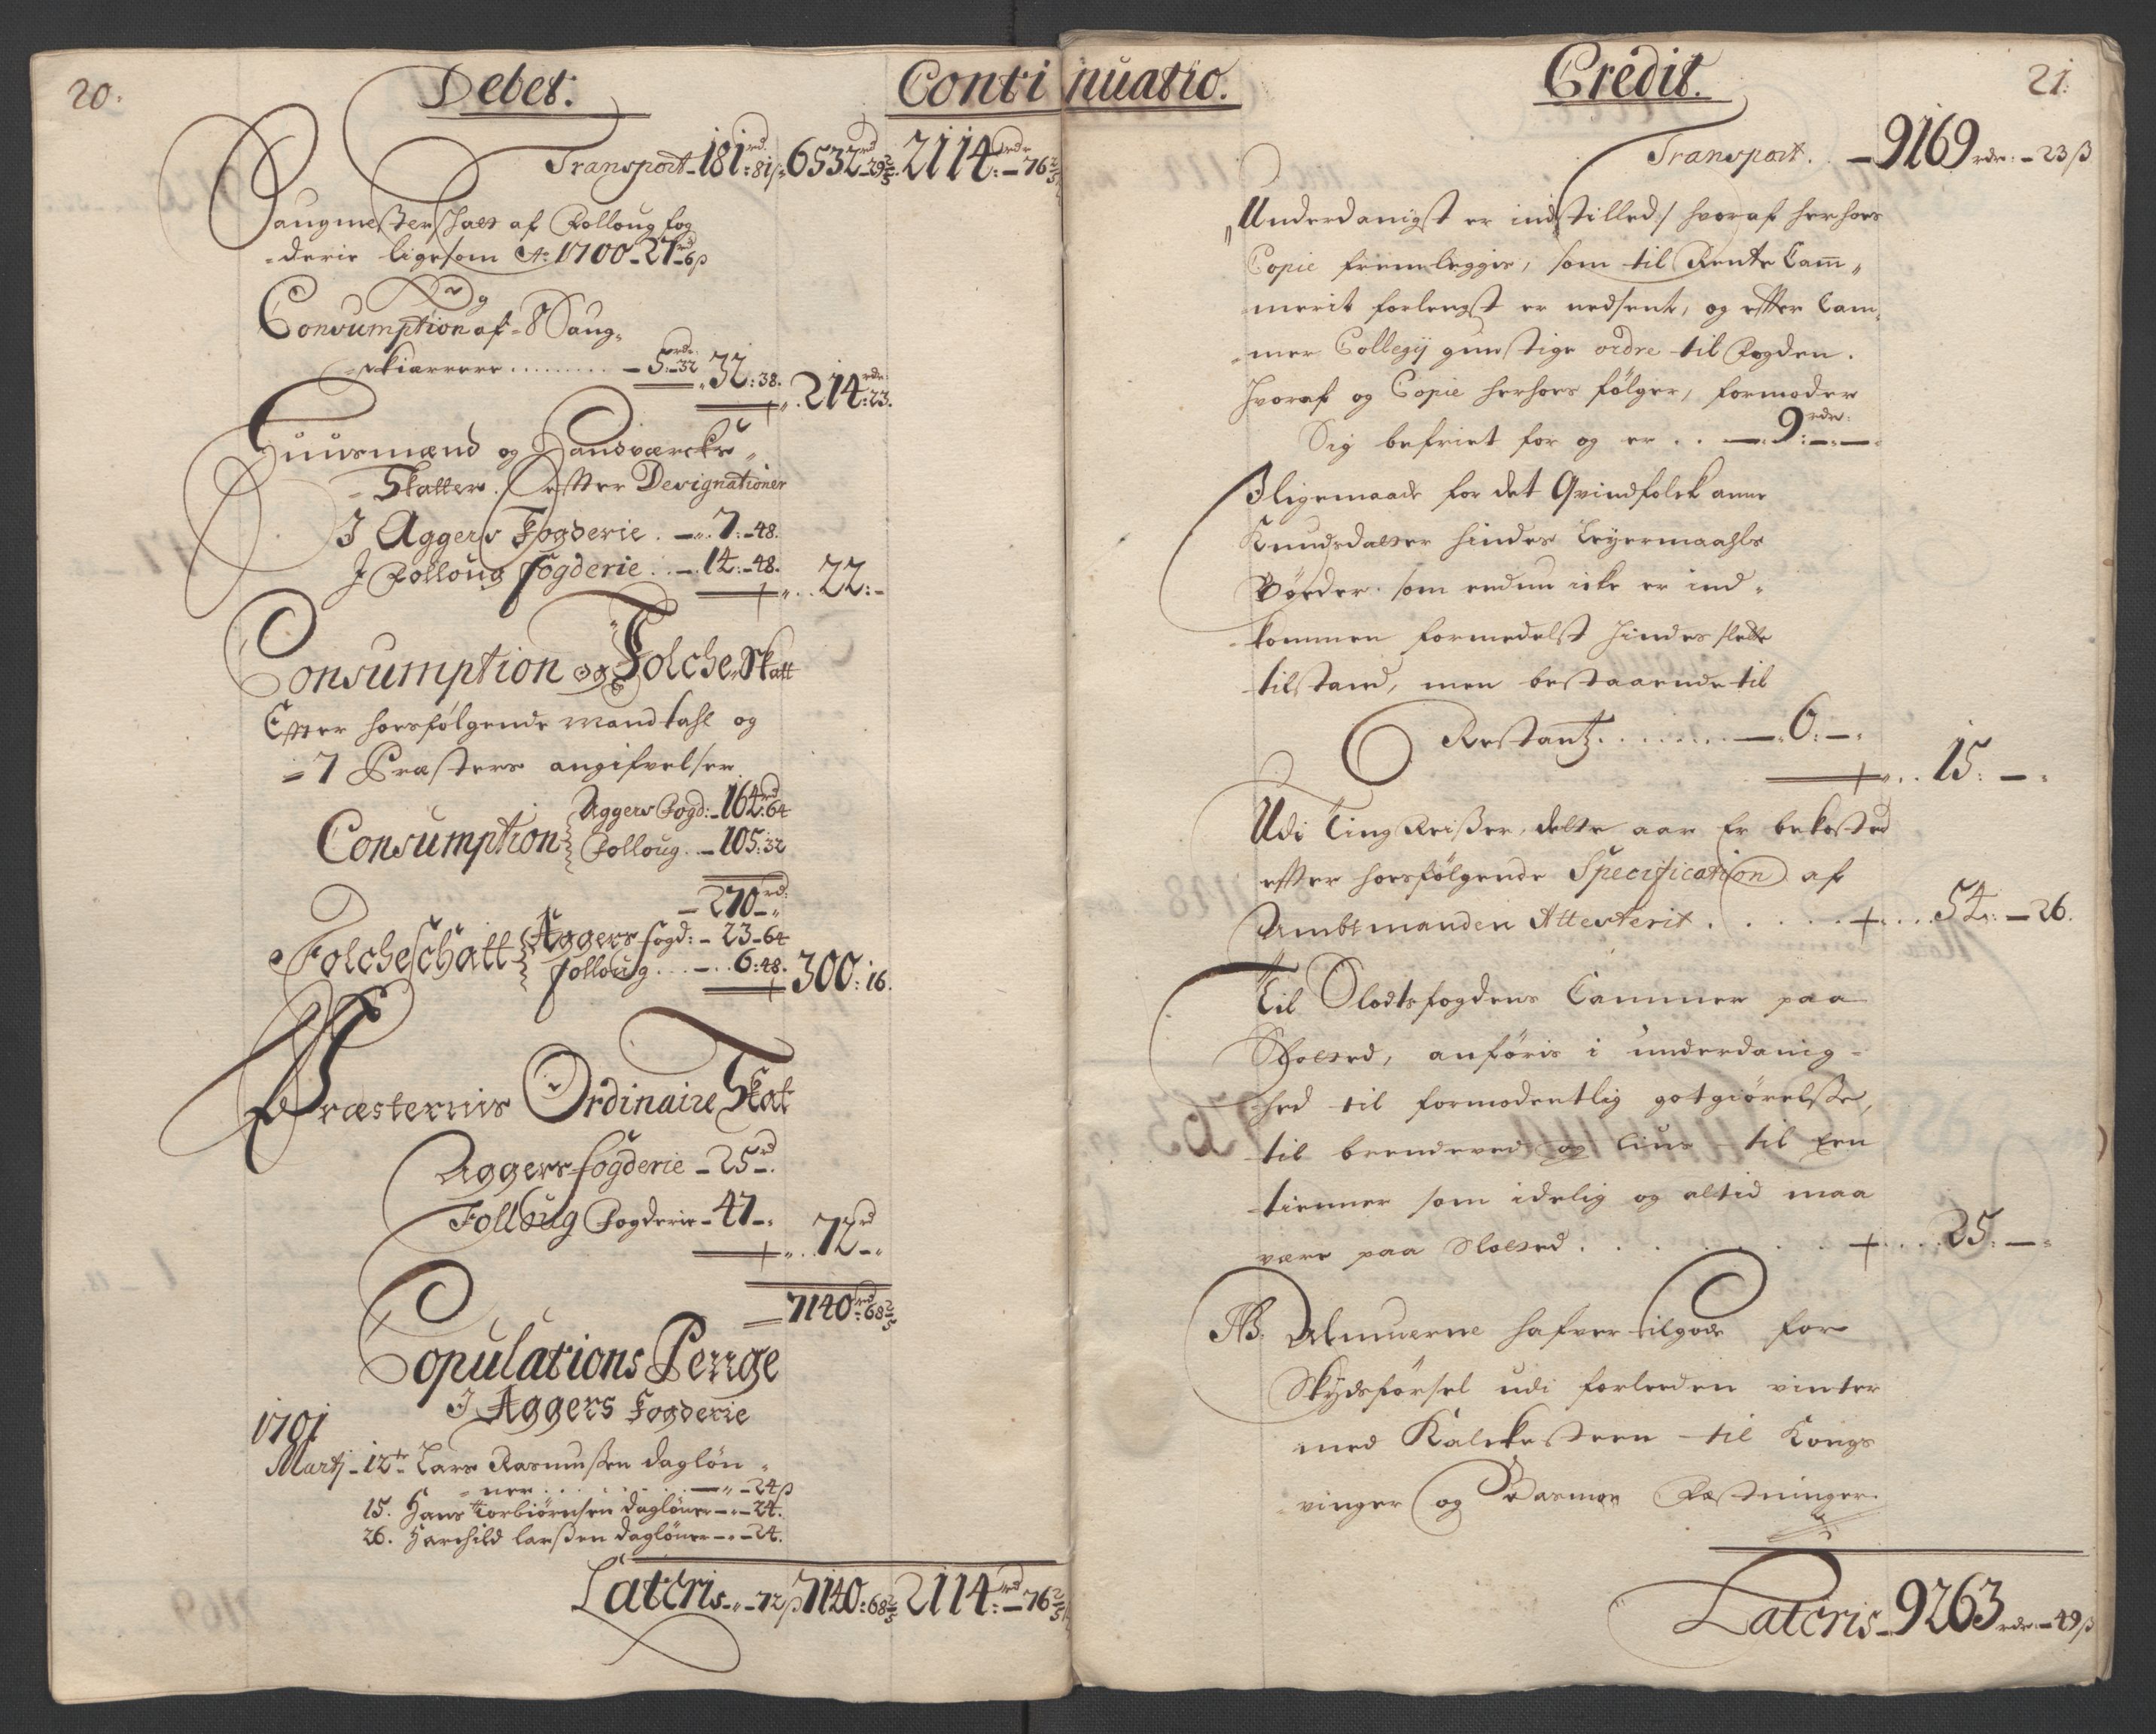 20.
Debet.
Continuatio.
Transport - 181 rd: 81 ß: 6532 rd - 29 2/5. 2114 rdr: - 76 2/5
Saugmester Schatt af Folloug fog
- derie ligesom Ao: 1700 - 27 rd - 6 ß
Og
Consumption af - 8 Saug-
skiærere ......... - 5 rdr: - 32 32: 38.
214 rdr: 23.
Huusmænd og Handværcks
- Skatter. Effter Designationer
I Aggers Fogderie . - . 7: - 48.
I Folloug fogderie . . - . 14: - 48. 22: -
Consumption og Folche Skatt
Effter hoesfølgende mandtahl og
- 7 Præsters angifvelser
Consumption Aggers Fogd: - 164 rd 64
Folloug . - 105: 32
- 270 rd: -
Folcheschatt Aggers fogd: - 23 - 64
folloug ... - . 6: 48. 300: 16.
Præsternis Ordinaire Skat
Aggers fogderie - 25 rd -.
Folloug Fogderie - 47 -.
72 rd -
7140 rd: 68 2/5
Copulations Penge
I Aggers Fogderie
1701
Martj - 12te Lars Rasmussen dagløn-
- ner ........ - 24 ß
15. Hans Torbiørnsen dagløner - - 24.
26. Harchild larssen dagløner - - 24.
Lateris - 72 ß 7140: 68 2/5 2114 rd: - 76 2/5
Credit.
21.
Transport. . - 9169 rdr: - 23 ß
Underdanigst er indstilled / hvoraf herhoes
Copie fremleggis, som til Rente Cam-
- merit forlengst er nedsent, og effter Cam-
- mer Collegij gunstige ordre til Fogden.
Hvoraf og Copie herhoes følger, formoder
Sig befriet for og er . . - . 9 rdr: - . -
I ligemaade for det Qvindfolck anne
Knudsdatter hindes Leyermaahls
Bøeder. som endnu icke er ind-
- kommen formedelst hindes slette
tilstand, men bestaaende til
Restantz. ....... - . 6. - .
15. - .
Udi Ting Reisser, dette aar Er bekosted
effter hoesfølgende Specification af
Ambtmanden Attesterit . . . . . 54: - 26.
Til Slodtsfogdens Cammer paa
Slotted, anføris i underdanig-
hed til formodentlig gotgiørelsse,
til brendeved og lius til Een
tienner som idelig og altid maa
være paa Slotted . . . . . . . 25. - .
NB. Almuerne hafver tilgode for
Skydsførsel udi forleeden vinter
med Kalckesteen til Kongs
- vinger og Basmoe Fæstninger.
Lateris - 9263 rdr: - 49 ß